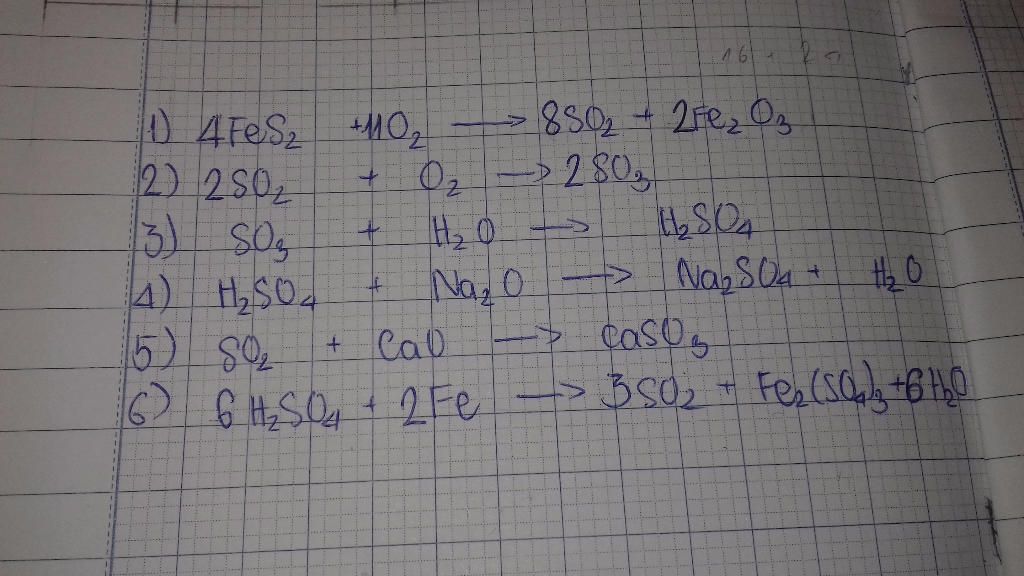 1) 4FeS₂ +11O₂ → 8SO₂ + 2Fe₂O₃
2) 2SO₂ + O₂ → 2SO₃
3) SO₃ + H₂O → H₂SO₄
4) H₂SO₄ + Na₂O → Na₂SO₄ + H₂O
5) SO₂ + CaO → CaSO₃
6) 6H₂SO₄ + 2Fe → 3SO₂ + Fe₂(SO₄)₃ + 6H₂O